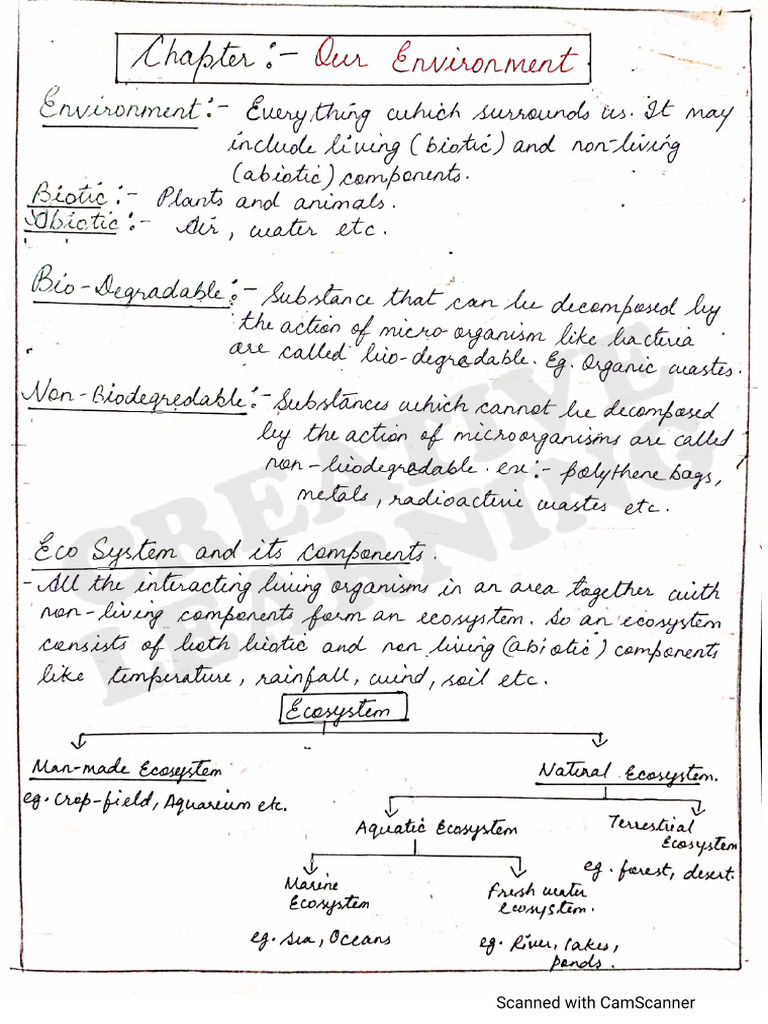 Chapter :- Our Environment
Environment :- Everything which surrounds us. It may
include living (biotic) and non-living
(abiotic) components.
Biotic :- Plants and animals.
Abiotic :- Air, water etc.
Bio-Degradable :- Substance that can be decomposed by
the action of micro organism like bacteria
are called bio-degradable. Eg. Organic wastes.
Non-Biodegredable :- Substances which cannot be decomposed
by the action of microorganisms are called
non-biodegredable. ex :- polythene bags,
metals, radioactive wastes etc.
Eco System and its components.
- All the interacting living organisms in an area together with
non-living components form an ecosystem. So an ecosystem
consists of both biotic and non living (abiotic) components
like temperature, rainfall, wind, soil etc.
Ecosystem
Man-made Ecosystem
Natural Ecosystem.
eg. Crop-field, Aquarium etc.
Aquatic Ecosystem
Terrestrial
Ecosystem
eg. forest, desert.
Marine
Ecosystem
Fresh water
ecosystem.
eg. sea, Oceans
eg. River, lakes,
ponds.
CREATIVE
LEARNING
Scanned with CamScanner